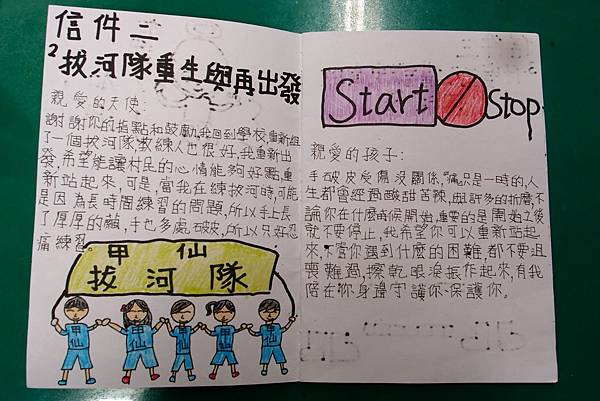 信件二
2拔河隊重生與再出發
親愛的天使:
謝謝你的指點和鼓勵,我回到學校,重新組
了一個拔河隊,教練人也很好,我重新出
發,希望能讓村民的心情能夠好點,重
新站起來,可是,當我在練拔河時,可能
是因為長時間練習的問題,所以手上長
了厚厚的繭,手也多處破皮,所以只好忍
痛練習。
甲仙
拔河隊
甲仙
甲仙
甲仙
甲仙
甲仙
Start
Stop
親愛的孩子:
手破皮受傷沒關係,痛只是一時的,人
生都會經過酸甜苦辣,與許多的折磨,不
論你在什麼時候開始,重要的是開始之後
就不要停止,我希望你可以重新站起
來,不管你遇到什麼的困難,都不要沮
喪難過,擦乾眼淚振作起來,有我
陪在你身邊守護你、保護你。